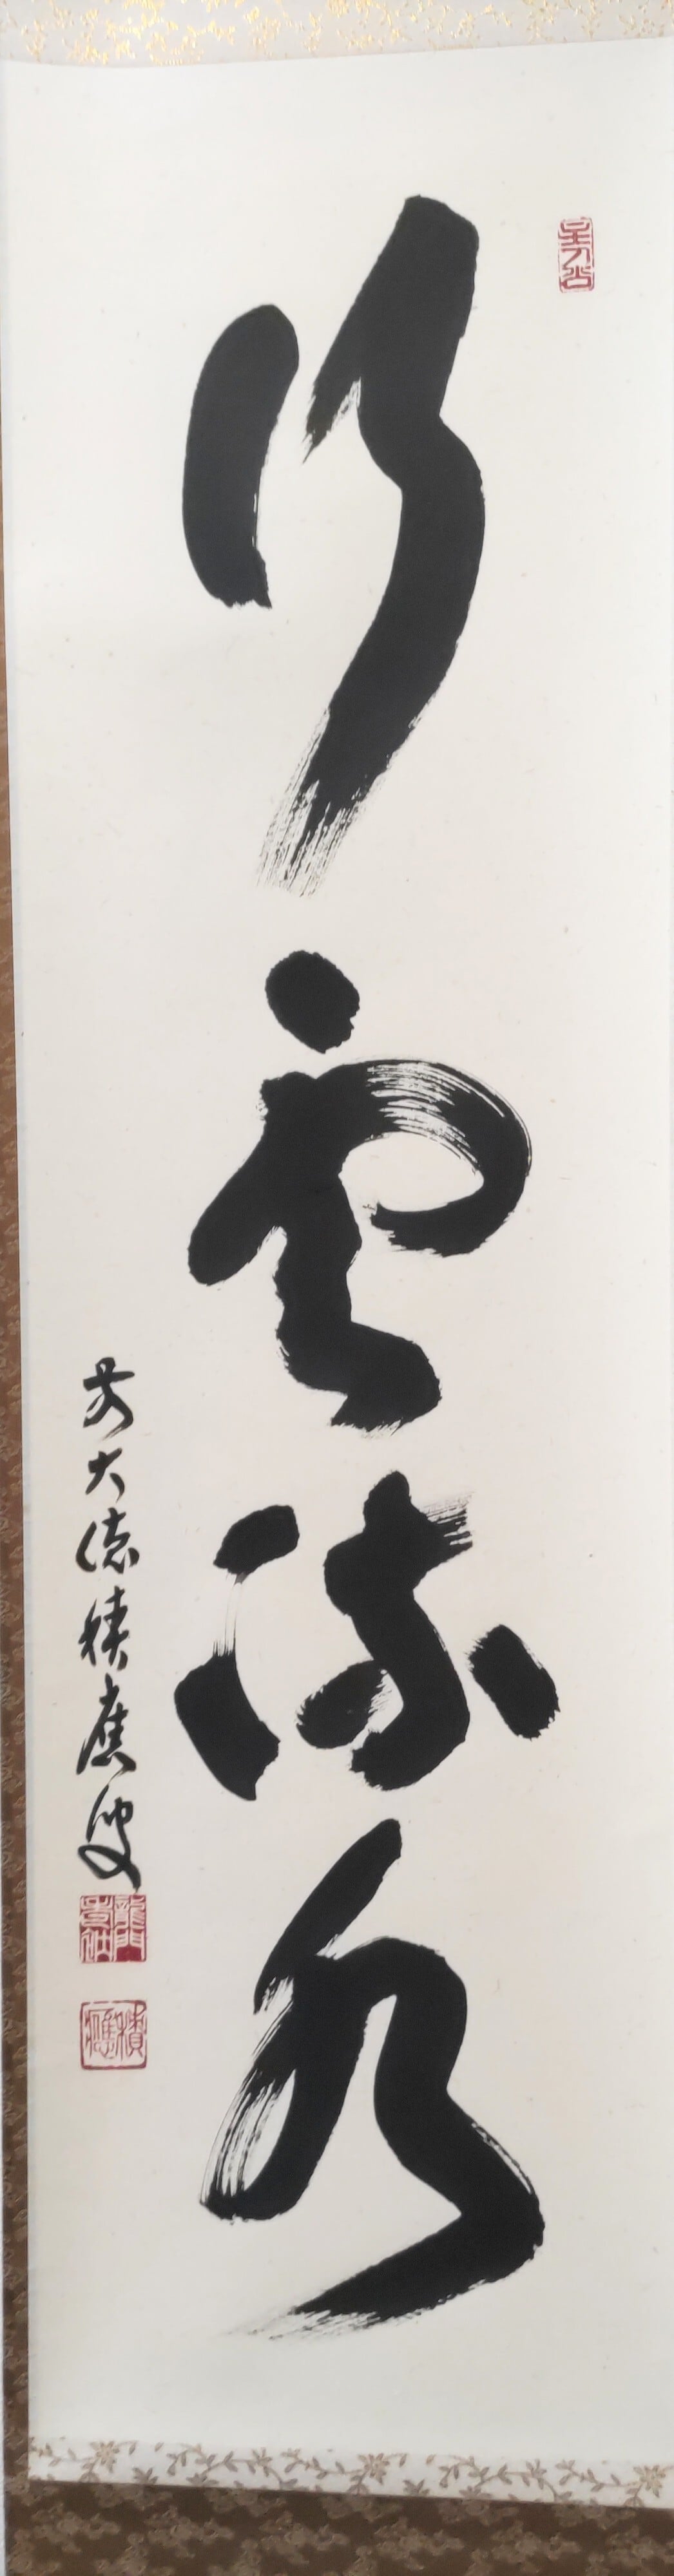 行雲流水
前大徳積應叟
積應